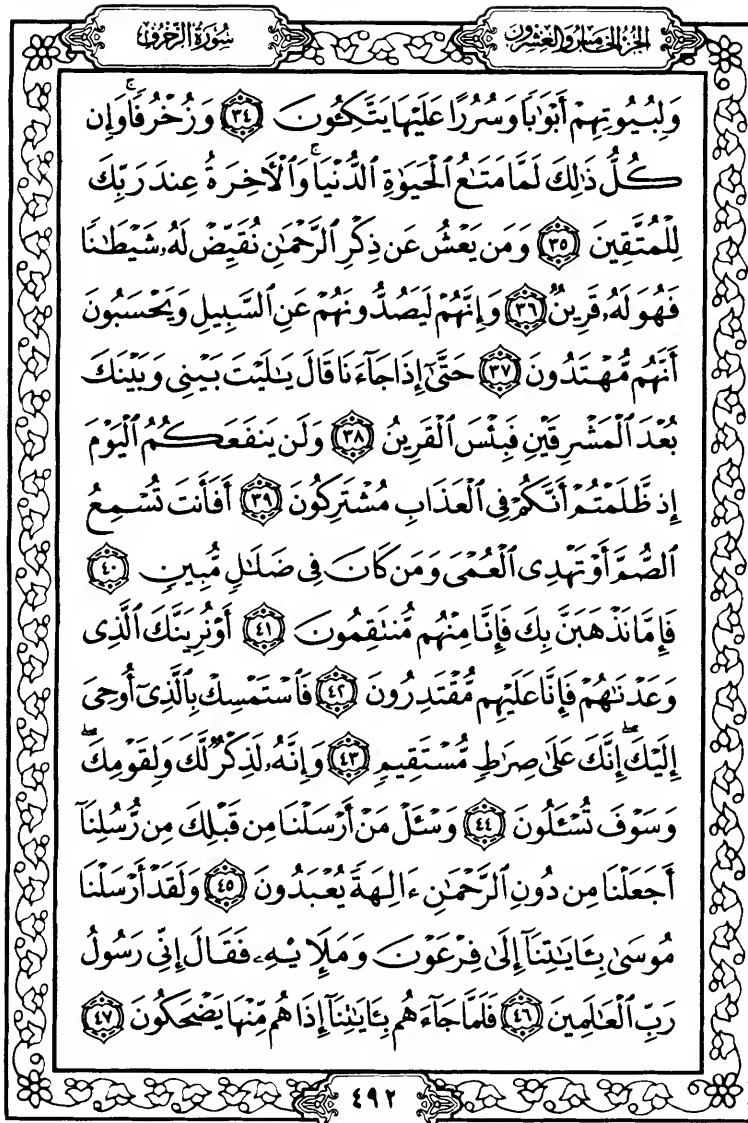 الجزء الخامس والعشرون
سُورَةُ الزُّخْرُفِ
وَلِبُيُوتِهِمْ أَبْوَٰبًا وَسُرُرًا عَلَيْهَا يَتَّكِـُٔونَ ٣٤ وَزُخْرُفًا ۚ وَإِن
كُلُّ ذَٰلِكَ لَمَّا مَتَـٰعُ ٱلْحَيَوٰةِ ٱلدُّنْيَا ۚ وَٱلْـَٔاخِرَةُ عِندَ رَبِّكَ
لِلْمُتَّقِينَ ٣٥ وَمَن يَعْشُ عَن ذِكْرِ ٱلرَّحْمَـٰنِ نُقَيِّضْ لَهُۥ شَيْطَـٰنًا
فَهُوَ لَهُۥ قَرِينٌ ٣٦ وَإِنَّهُمْ لَيَصُدُّونَهُمْ عَنِ ٱلسَّبِيلِ وَيَحْسَبُونَ
أَنَّهُم مُّهْتَدُونَ ٣٧ حَتَّىٰٓ إِذَا جَآءَنَا قَالَ يَـٰلَيْتَ بَيْنِى وَبَيْنَكَ
بُعْدَ ٱلْمَشْرِقَيْنِ فَبِئْسَ ٱلْقَرِينُ ٣٨ وَلَن يَنفَعَكُمُ ٱلْيَوْمَ
إِذ ظَّلَمْتُمْ أَنَّكُمْ فِى ٱلْعَذَابِ مُشْتَرِكُونَ ٣٩ أَفَأَنتَ تُسْمِعُ
ٱلصُّمَّ أَوْ تَهْدِى ٱلْعُمْىَ وَمَن كَانَ فِى ضَلَـٰلٍ مُّبِينٍ ٤٠
فَإِمَّا نَذْهَبَنَّ بِكَ فَإِنَّا مِنْهُم مُّنتَقِمُونَ ٤١ أَوْ نُرِيَنَّكَ ٱلَّذِى
وَعَدْنَـٰهُمْ فَإِنَّا عَلَيْهِم مُّقْتَدِرُونَ ٤٢ فَٱسْتَمْسِكْ بِٱلَّذِىٓ أُوحِىَ
إِلَيْكَ ۖ إِنَّكَ عَلَىٰ صِرَٰطٍ مُّسْتَقِيمٍ ٤٣ وَإِنَّهُۥ لَذِكْرٌ لَّكَ وَلِقَوْمِكَ ۖ
وَسَوْفَ تُسْـَٔلُونَ ٤٤ وَسْـَٔلْ مَنْ أَرْسَلْنَا مِن قَبْلِكَ مِن رُّسُلِنَآ
أَجَعَلْنَا مِن دُونِ ٱلرَّحْمَـٰنِ ءَالِهَةً يُعْبَدُونَ ٤٥ وَلَقَدْ أَرْسَلْنَا
مُوسَىٰ بِـَٔايَـٰتِنَآ إِلَىٰ فِرْعَوْنَ وَمَلَإِي۟هِۦ فَقَالَ إِنِّى رَسُولُ
رَبِّ ٱلْعَـٰلَمِينَ ٤٦ فَلَمَّا جَآءَهُم بِـَٔايَـٰتِنَآ إِذَا هُم مِّنْهَا يَضْحَكُونَ ٤٧
٤٩٢